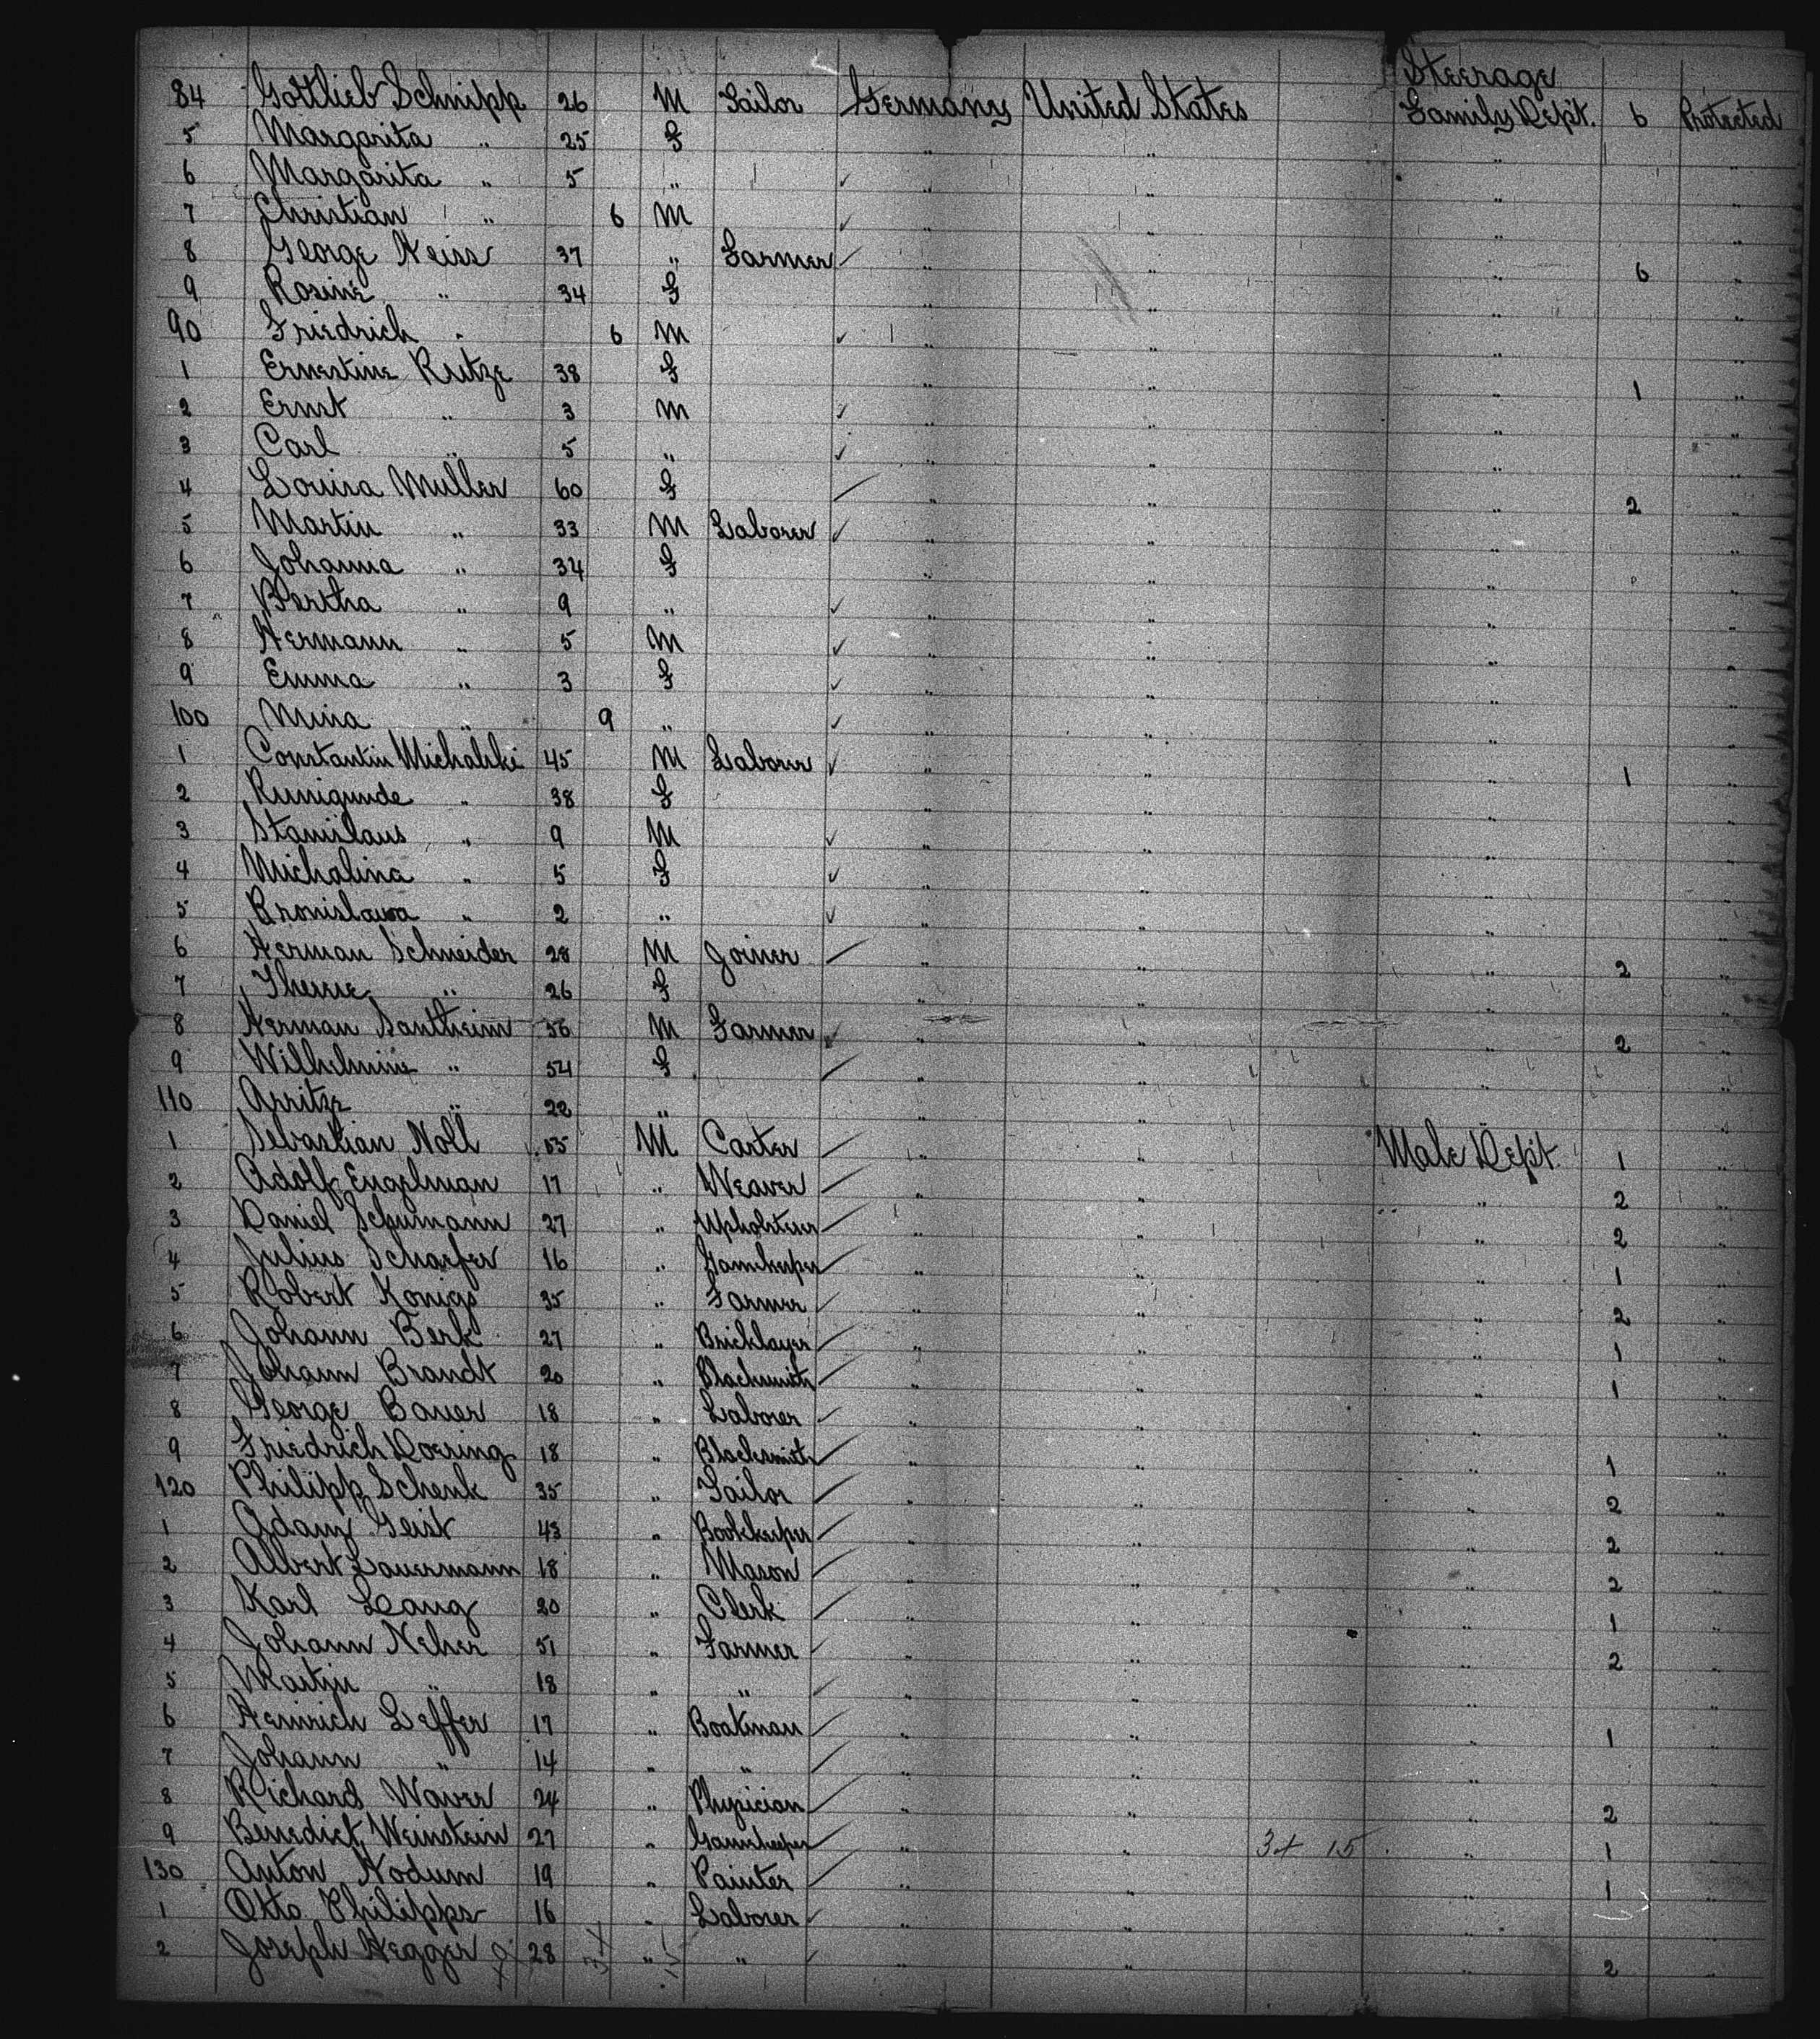 Steerage
84 Gottlieb Schnipp 26 M Tailor Germany United States Family Dept. 6 Protected
5 Margarita " 25 F " " " "
6 Margarita " 5 " " " " "
7 Christian " 6 M " " " "
8 George Heiss 37 " Farmer " " " 6 "
9 Rosine " 34 F " " " "
90 Friedrich " 6 M " " " "
1 Ernestine Rutze 38 F " " " 1 "
2 Ernst " 3 M " " " "
3 Carl " 5 " " " " "
4 Louisa Muller 60 F " " " 2 "
5 Martin " 33 M Laborer " " " "
6 Johanna " 34 F " " " "
7 Bertha " 9 " " " " "
8 Hermann " 5 M " " " "
9 Emma " 3 F " " " "
100 Mina " 9 " " " " "
1 Constantin Michalski 45 M Laborer " " " 1 "
2 Kunigunde " 38 F " " " "
3 Stanislaus " 9 M " " " "
4 Michalina " 5 F " " " "
5 Bronislawa " 2 " " " " "
6 Herman Schneider 28 M Joiner " " " 2 "
7 Therese " 26 F " " " "
8 Herman Sontheim 56 M Farmer " " " 2 "
9 Wilhelmine " 54 F " " " "
110 " 22 " " " "
1 Sebastian Noll M Carter " " Male Dept. 1 "
2 Adolf Engelman 17 " Weaver " " " 2 "
3 Daniel Schumann 27 " Upholsterer " " " 2 "
4 Julius Schaefer 16 " Gamekeeper " " " 1 "
5 Robert Konigs 35 " Farmer " " " 2 "
6 Johann Berk 27 " Bricklayer " " " 1 "
7 Johann Brandt 20 " Blacksmith " " " 1 "
8 George Bauer 18 " Laborer " " " "
9 Friedrich Doering 18 " Blacksmith " " " 1 "
120 Philipp Schenk 35 " Tailor " " " 2 "
1 Adam Geist 43 " Bookkeeper " " " 2 "
2 Albert Lauermann 18 " Mason " " " 2 "
3 Karl Lang 20 " Clerk " " " 1 "
4 Johann Neher 51 " Farmer " " " 2 "
5 Martin " 18 " " " " " "
6 Heinrich Leffer 17 " Boatman " " " 1 "
7 Johann " 14 " " " " " "
8 Richard Waver 24 " Physician " " " 2 "
9 Benedict Weinstein 27 " Gamekeeper " " 3+ 15 " 1 "
130 Anton Hodum 19 " Painter " " " 1 "
1 Otto Philipps 16 " Laborer " " " "
2 Joseph Hegger 28 " " " " " 2 "